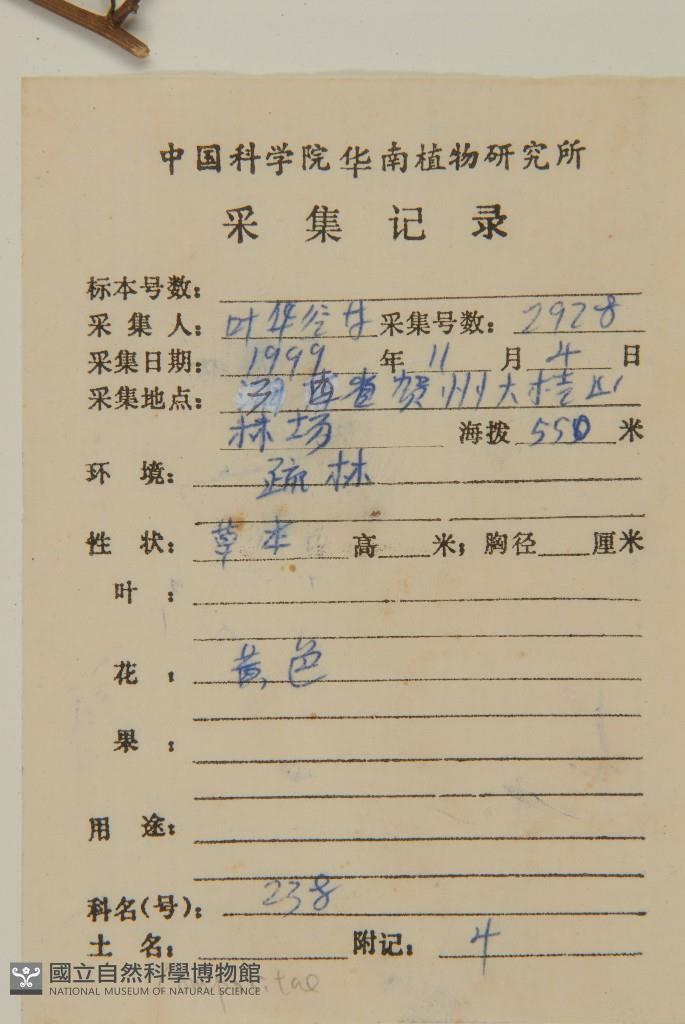 中国科学院华南植物研究所
采集记录
标本号数：
采集人：叶华谷 采集号数：2928
采集日期：1999年11月4日
采集地点：西省贺州大桂山
林场 海拨 550 米
环境：疏林
性状：草本 高 米；胸径 厘米
叶：
花：黄色
果：
用途：
科名(号)：238
土名： 附记：4
國立自然科學博物館
NATIONAL MUSEUM OF NATURAL SCIENCE